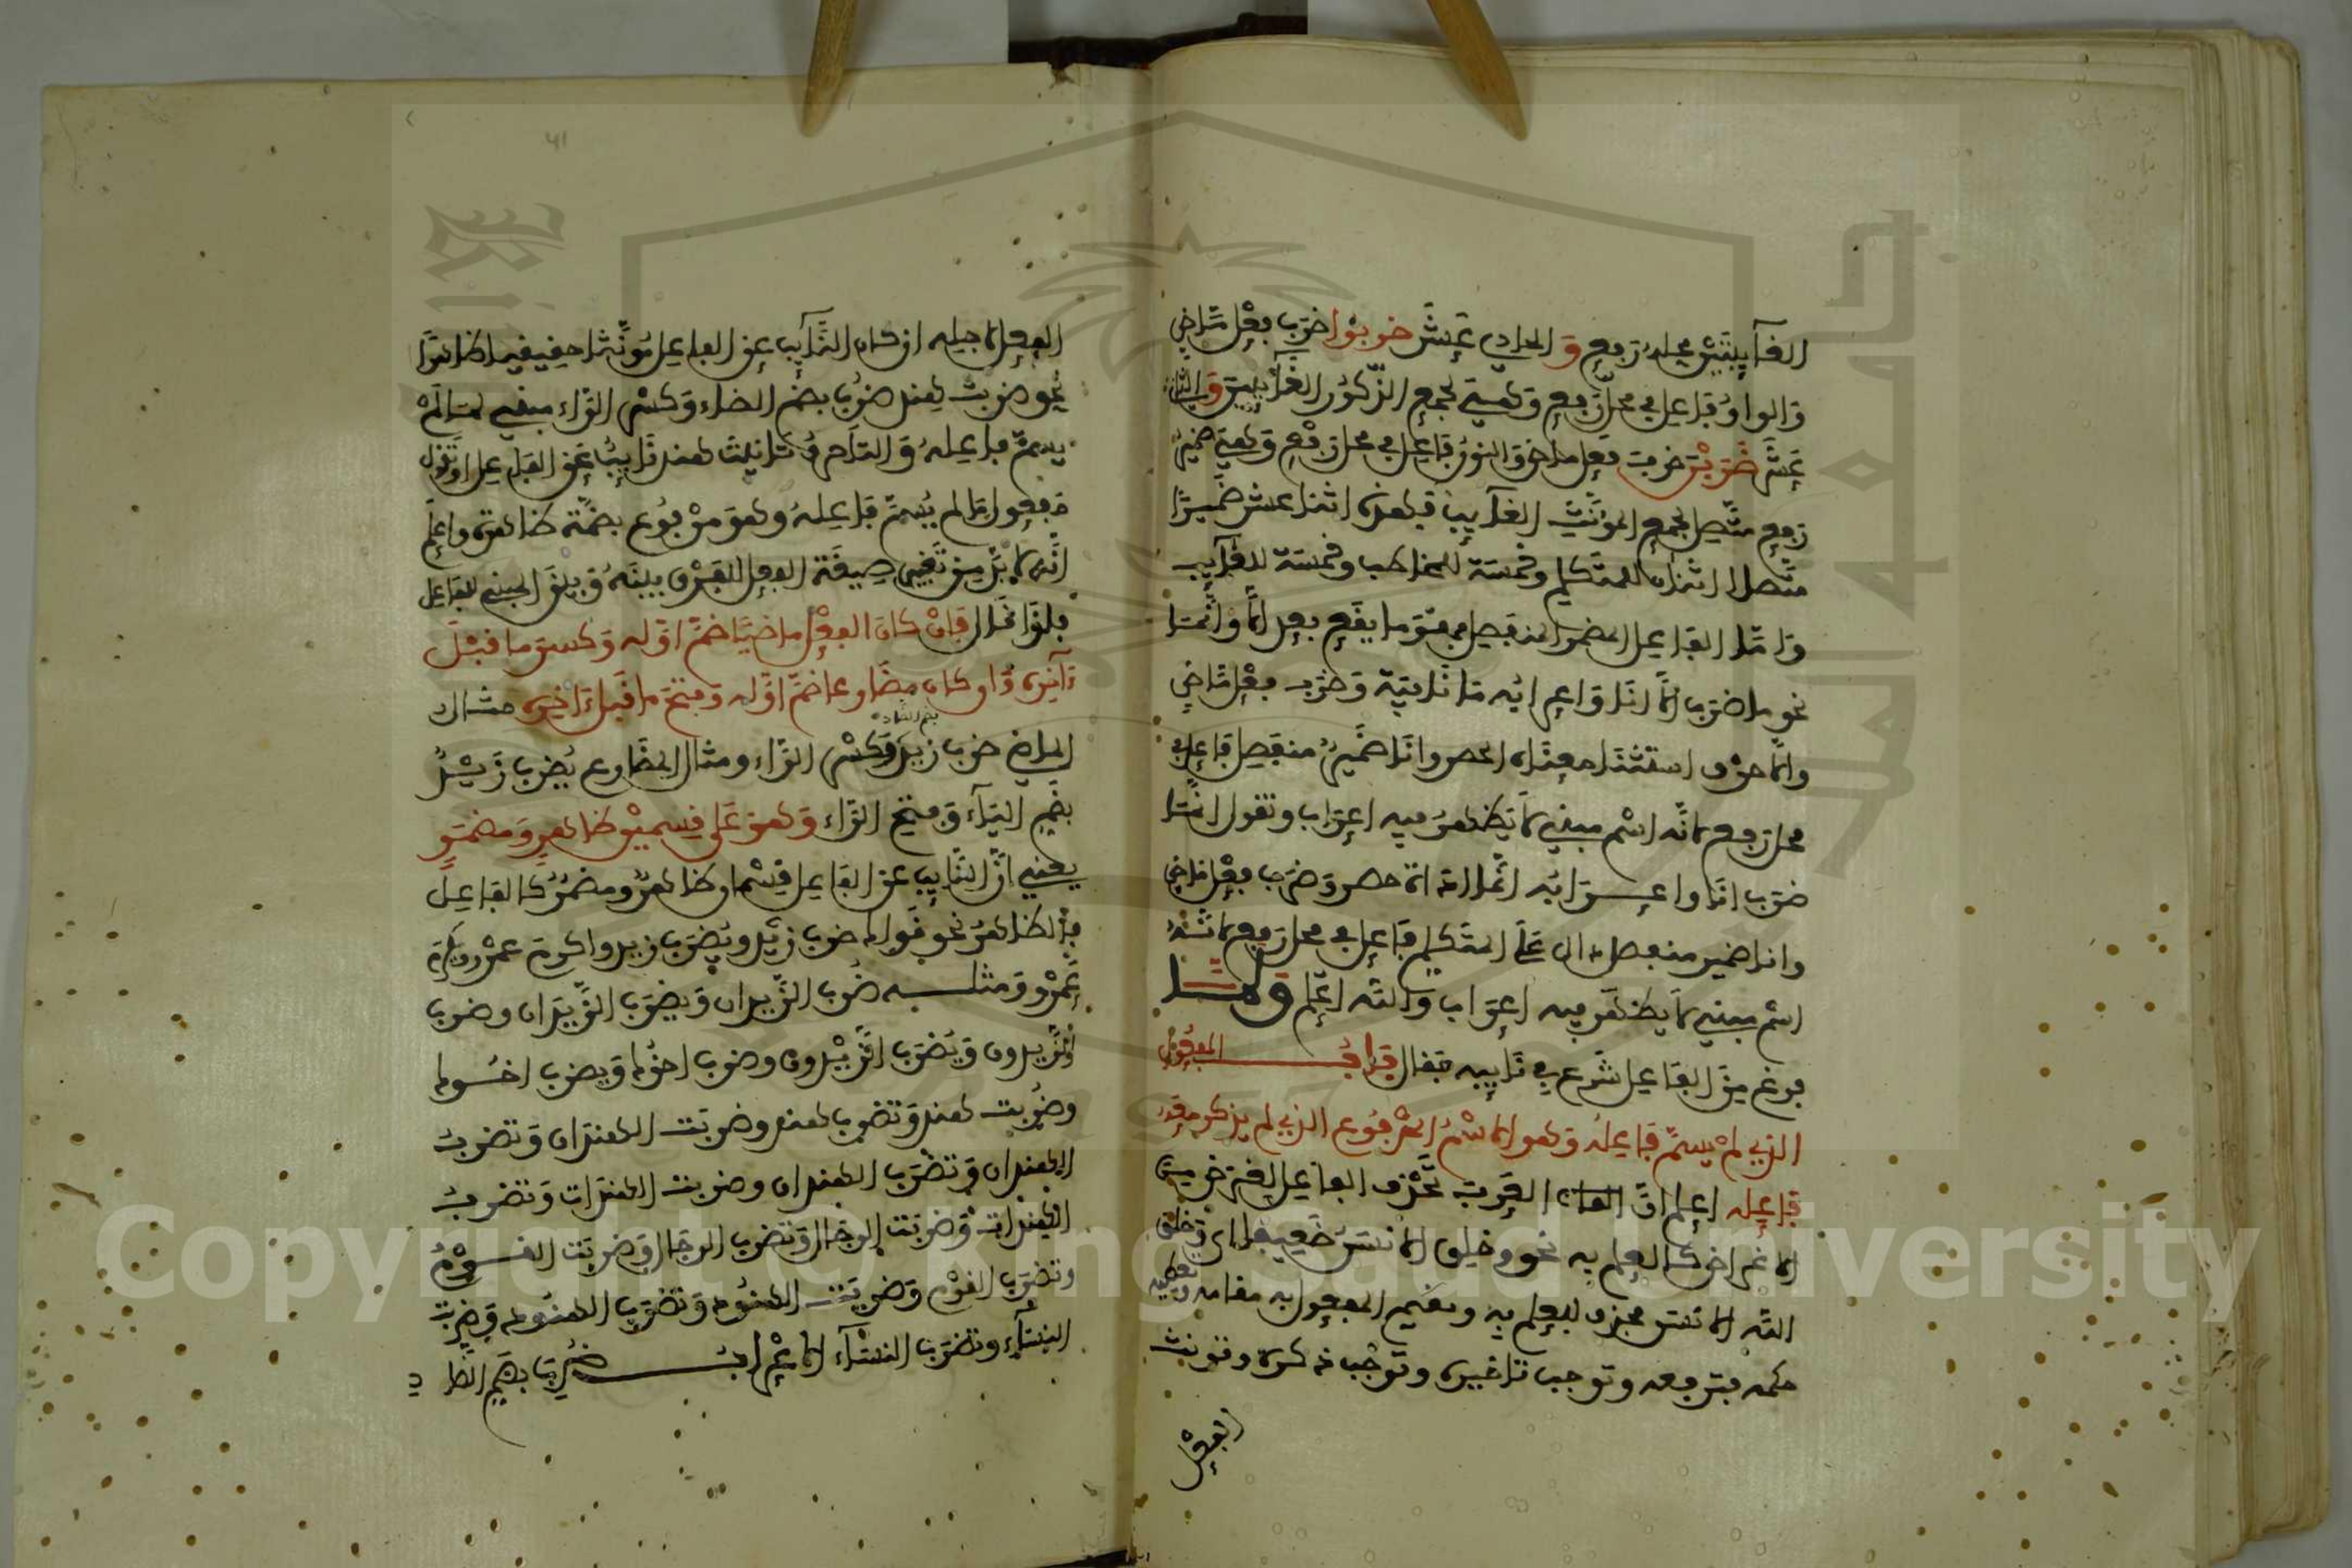 الغآيبَيْن محله رَفع وَ الحادي عَشَر ضربُوا ضَرَب فِعْل مَّاضي
وَالواوُ فَاعِل في محل رَفع وَهيَ لجمع الذّكور الغَآئِبينَ وَالثاني
عَشَر ضَرَبْنَ ضرب فعل ماض وَالنونُ فَاعِل في محل رَفْع وَهيَ ضميرُ
رَفع متَّصِل لجمع المؤنَّث الغآيب فهذه اثنا عشر ضَميرًا
متَّصلا اثنان للمتكلم وخمْسَة للمخاطب وخمسَة للغآيب
وَامَّا الفَاعِل المضمر المنفَصِل فهوَ ما يقَع بعد الَّا وَانَّمَا
نحو ما ضرَب الَّا انَا وَاعرابُه مَا نَافيَة وَضرَب فِعْل مَّاضي
والَّا حرْف استثنَا معنَاه الحصر وانَا ضَميرٌ منفَصِل فَاعِل في
محل رَفع لانَّه اسْم مبني لَا يَظهَرُ فيه اِعرَاب وتقول انَّمَا
ضرَب انَا واِعـــرَابُه انَّما اداة حصر وَضرَب فِعْل مَاضي
وانا ضمير منفصل دال عَلَى المتَكلم فَاعِل في محل رَفع لانَّهُ
اسْم مبني لَا يظهَر فيه اِعرَاب وَاللَّه اعْلَم وَلمَّــا
فرغ مِنَ الفَاعِل شَرَع في نَايبه فَقال بَابُ المفعُول
الذي لمْ يسَمَّ فَاعِلهُ وَهو الاسْمُ المَرْفُوع الذي لم يذكر معَه
فَاعِله اِعلم انَّ العرب تَحْذف الفاعِل لِغرَض مِنَ
الاغراض كالعِلم به نحو وخلِق الانسَنُ ضَعِيفا اى وَخَلَق
اللَّه الانسَن فحذف للعِلم به وتقيم المفعول به مقامه وتعطيه
حكمه فترفعه وتوجب تاخيره وتوجب تذكره وتونث
الفِعْل
41
الفعل لاجله ان كان النَّآيب عن الفاعِل مُوَنَّثا حقيقيا ظاهرًا
نحو ضربت هِند ضُرِب بضم الضاد وَكسْر الرَّاء مبني لمَا لَمْ
يسَمَّ فاعِلهُ وَالتاحرفُ تانيث هند نَايبُ عَن الفَاعِل اوتقول
مَفعول لما لم يُسَمَّ فَاعِلهُ وَهوَ مرْفُوع بضَمَّة ظاهرة واعلم
انَّه لا بدَّ مِن تَغيير صِيغَة الفعل للفَرْق بينَهُ وَبينَ المبني للفَاعِل
فلذا قَال فَإِنْ كانَ الفِعْل ماضيًا ضمَّ اوَّله وَكسرَ ما قَبْلَ
ءَاخِره وَان كان مضَارعا ضمَّ اوَّله وَفتحَ ما قَبل ءَاخِره مثال
الماضي ضرب زيد بضم الضاد وَكسْر الرَّاء ومثال المضَارع يُضرب زَيْـدٌ
بضَم اليَآء وَفتح الرَّاء وَهوَ عَلى قِسمَيْن ظاهر وَمضمَر
يعني انَّ النَّايب عن الفَاعِل قِسْمان ظاهرٌ ومضمَرٌ كالفَاعِل
فالظاهرُ نحو قَولك ضرب زَيْد ويُضرَب زيد واكرمَ عمْرو ويكرم
عَمْرو وَمثلـــه ضُرب الزَّيدان وَيضرَب الزَّيدَان وضرب
الزَّيدون وَيُضرَب الزَّيْدون وضرب اخُوك وَيضرب اخُـوك
وضُربت هند وَتضرب هند وضربَت الهندَان وَتضربُ
الهندان وَتضرَب الهندان وضربت الهندَات وَتضربُ
الهندات وَضربَت الرجَال وَتضرب الرجَال وَضربَت القــومُ
وتضرَب القوْم وَضربَت الهنُود وَتضرَب الهنُود وَضربَت
النسَآء وتضرَب النسَآء الاعْرابُ ـــ ضُرِبَ بضَم الضاد